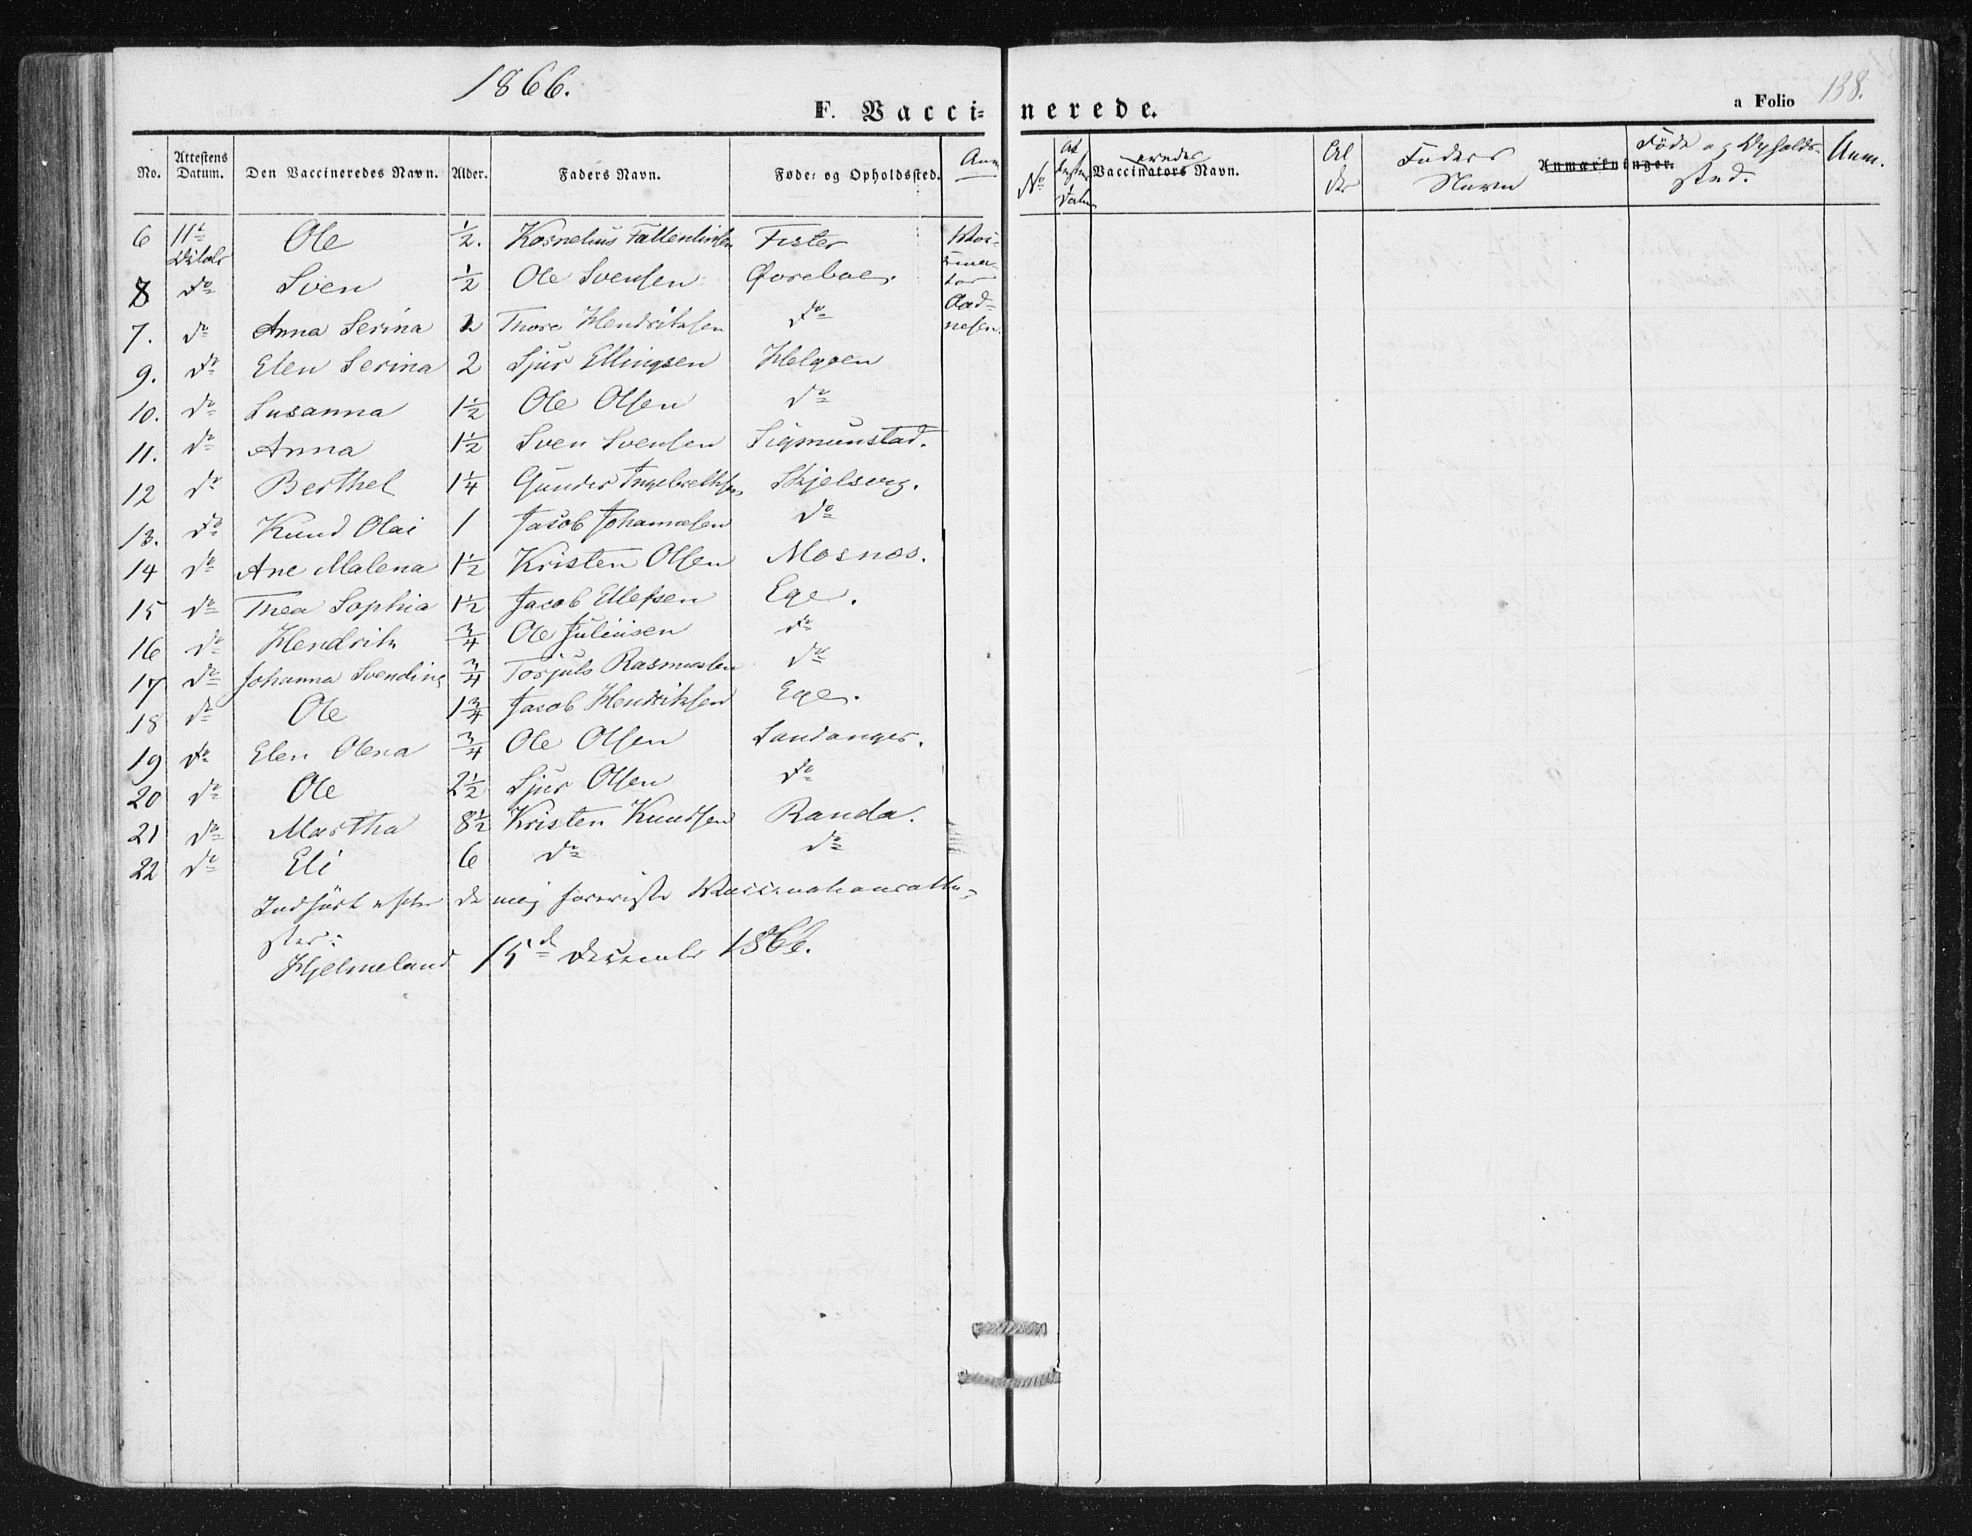 1866.
F. Vacci- nerede.
a Folio 138.
No. Attestens Datum. Den Vaccineredes Navn. Alder. Faders Navn. Føde- og Opholdssted. Anm
No Vaccinators Navn. Al der Faders Navn Anmærkninger. Føde og Opholds- sted. Anm.
6 11te Ole ½. Kornelius Fister
8 do Sven ½ Ole Svensen Øvreboe.
7. do Anna Serina 2 Thore Hendriksen do
9. do Elen Serina 2 Sjur Ellingsen Helgøen
10. do Susanna 1½ Ole Olsen do
11. do Anna 1½ Sven Svensen Sigmunstad.
12 do Berthel 1¼ Gunder Ingebrethsen
13. do Knud Olai 1 Jacob Johannesen do
14 do Ane Malena 1½ Kristen Olsen Mosnes.
15 do Thea Sophia 1½ Jacob Ellefsen Ege.
16 do Hendrik ¾ Ole Juliusen do
17 do Johanna Svendine ¾ Torjuls Rasmussen do
18 do Ole 1¾ Jacob Hendriksen Ege.
19 do Elen Olena ¾ Ole Olsen Sandanger.
20 do Ole 2½ Sjur Olsen do
21 do Martha 8½ Kristen Knudsen Randa.
22 do Eli 6 do do
Indført efter de mig foreviste Vaccinationsatte-
ster:
Hjelmeland 15d December 1866.